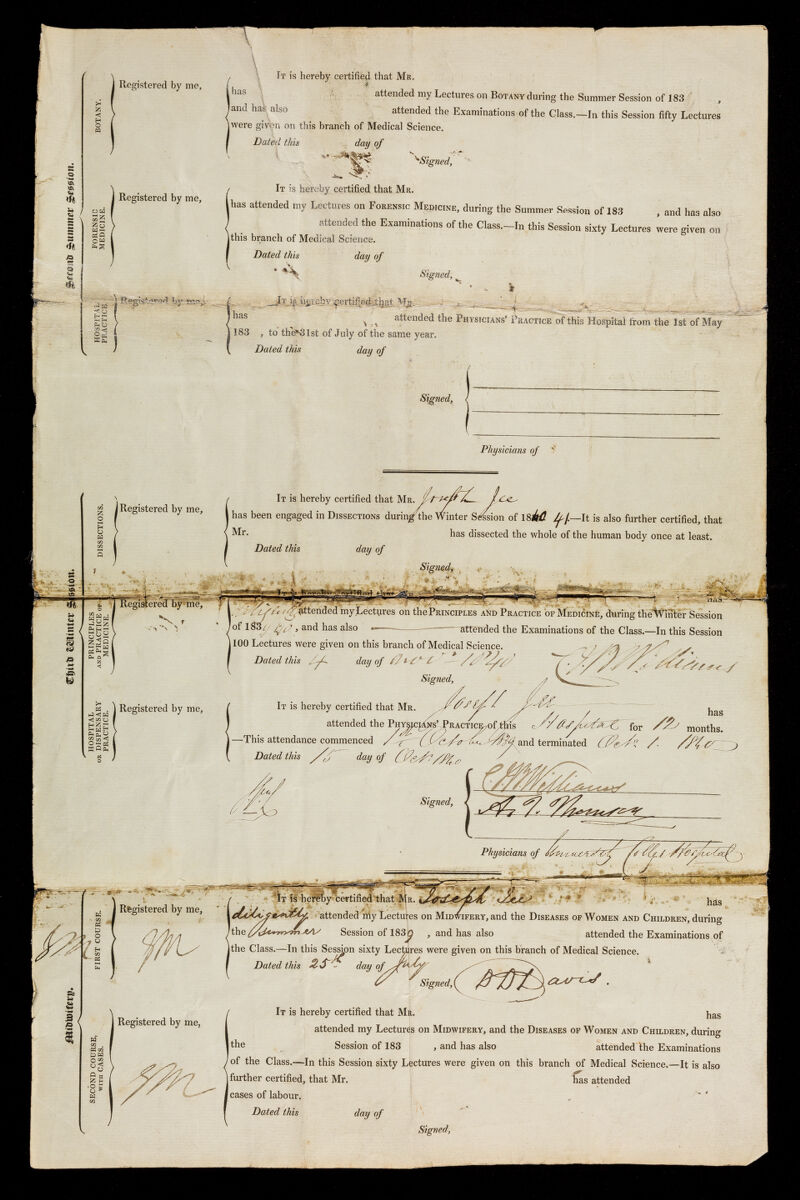 Second Summer Session.
BOTANY.
Registered by me,
It is hereby certified that Mr.
has attended my Lectures on Botany during the Summer Session of 183 ,
and has also attended the Examinations of the Class.—In this Session fifty Lectures
were given on this branch of Medical Science.
Dated this day of
Signed,
FORENSIC MEDICINE.
Registered by me,
It is hereby certified that Mr.
has attended my Lectures on Forensic Medicine, during the Summer Session of 183 , and has also
attended the Examinations of the Class.—In this Session sixty Lectures were given on
this branch of Medical Science.
Dated this day of
Signed,
HOSPITAL PRACTICE.
Registered by me,
It is hereby certified that Mr.
has attended the Physicians' Practice of this Hospital from the 1st of May
183 , to the 31st of July of the same year.
Dated this day of
Signed,
Physicians of
Third Winter Session.
DISSECTIONS.
Registered by me,
It is hereby certified that Mr. Joseph Jee
has been engaged in Dissections during the Winter Session of 1840 41.—It is also further certified, that
Mr. has dissected the whole of the human body once at least.
Dated this day of
Signed,
PRINCIPLES AND PRACTICE OF MEDICINE.
Registered by me,
It is hereby certified that Mr. has
diligently attended my Lectures on the Principles and Practice of Medicine, during the Winter Session
of 183 , and has also attended the Examinations of the Class.—In this Session
100 Lectures were given on this branch of Medical Science.
Dated this 4 day of Novr 1840
Signed, C J B Williams
HOSPITAL OR DISPENSARY PRACTICE.
Registered by me,
It is hereby certified that Mr. Joseph Jee has
attended the Physicians' Practice of this Hospital for 12 months.
—This attendance commenced 1st October 1839 and terminated Octr 1. 1840
Dated this 15 day of Octr 1840
Signed, C J B Williams
A. T. Thomson
Physicians of University College Hospital
Midwifery.
FIRST COURSE.
Registered by me,
JM
JM
It is hereby certified that Mr. Joseph Jee has
diligently attended my Lectures on Midwifery, and the Diseases of Women and Children, during
the Summer Session of 1839 , and has also attended the Examinations of
the Class.—In this Session sixty Lectures were given on this branch of Medical Science.
Dated this 25th day of July
Signed, D D Davis.
SECOND COURSE, WITH CASES.
Registered by me,
JM
It is hereby certified that Mr. has
attended my Lectures on Midwifery, and the Diseases of Women and Children, during
the Session of 183 , and has also attended the Examinations
of the Class.—In this Session sixty Lectures were given on this branch of Medical Science.—It is also
further certified, that Mr. has attended
cases of labour.
Dated this day of
Signed,